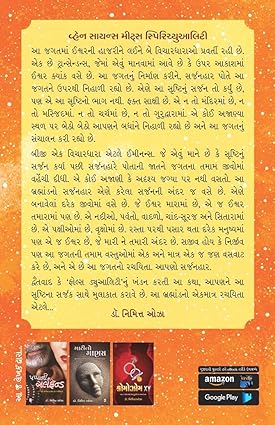 વ્હેન સાયન્સ મીટ્સ સ્પિરિચ્યુઆલિટી
આ જગતમાં ઈશ્વરની હાજરીને લઈને બે વિચારધારાઓ પ્રવર્તી રહી છે.
એક છે ટ્રાન્સેન્ડન્સ, જેમાં એવું માનવામાં આવે છે કે ઉપર આકાશમાં
ઈશ્વર ક્યાંક વસે છે. આ જગતનું નિર્માણ કરીને, સર્જનહાર પોતે આ
જગતને ઉપરથી નિહાળી રહ્યો છે. એણે આ સૃષ્ટિનું સર્જન તો કર્યું છે,
પણ એ આ સૃષ્ટિનો ભાગ નથી. ફક્ત સાક્ષી છે. એ ન તો મંદિરમાં છે, ન
તો મસ્જિદમાં. ન તો ચર્ચમાં છે, ન તો ગુરુદ્વારામાં. એ કોઈ અજાણ્યા
સ્થળ પર બેઠો બેઠો આપણને બધાંને નિહાળી રહ્યો છે અને આ જગતનું
સંચાલન કરી રહ્યો છે.
બીજી એક વિચારધારા એટલે ઈમીનન્સ. જે એવું માને છે કે સૃષ્ટિનું
સર્જન કર્યા પછી સર્જનહારે પોતાની જાતને જગતના તમામ જીવોમાં
વહેંચી દીધી. એ કોઈ અજાણી કે અદૃશ્ય જગ્યા પર નથી વસતો. આ
બ્રહ્માંડનો સર્જનહાર એણે કરેલા સર્જનની અંદર જ વસે છે. એણે
બનાવેલાં દરેક જીવોમાં વસે છે. જે ઈશ્વર મારામાં છે, એ જ ઈશ્વર
તમારામાં પણ છે. એ નદીઓ, પર્વતો, વાદળો, ચાંદ-સૂરજ અને સિતારામાં
છે. એ પક્ષીઓમાં છે, વૃક્ષોમાં છે. રસ્તા પરથી પસાર થતા દરેક મનુષ્યમાં
પણ એ જ ઈશ્વર છે, જે મારી ને તમારી અંદર છે. સજીવ હોય કે નિર્જીવ
પણ આ જગતની તમામ વસ્તુઓમાં એક અને માત્ર એક જ જણ વસવાટ
કરે છે, અને એ છે આ જગતનો રચયિતા. આપણો સર્જનહાર.
દ્વૈતવાદ કે 'ફોલ્સ ડ્યુઆલિટી'નું ખંડન કરતી આ કથા, આપણને આ
સૃષ્ટિના સર્જક સાથે મુલાકાત કરાવે છે. આ બ્રહ્માંડનો એકમાત્ર રચયિતા
એટલે...
ડૉ. નિમિત્ત ઓઝા
માટીનો માણસ
ક્રોમોઝોમ XY
amazon
kindle
Google Play